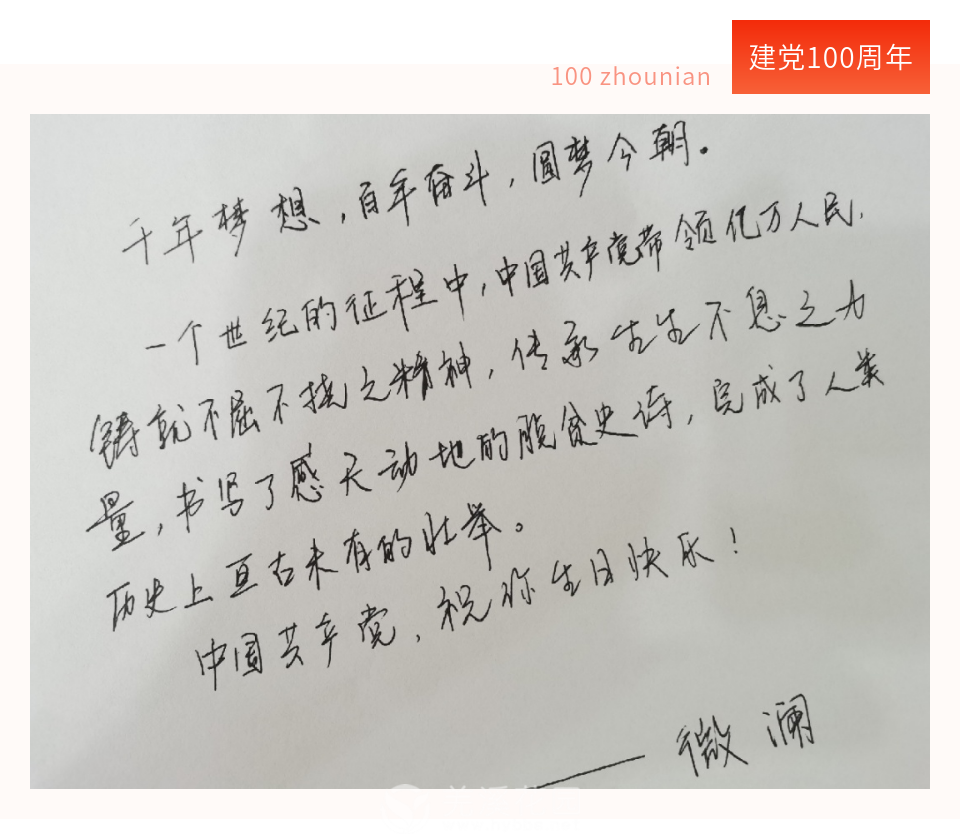 建党100周年
100 zhounian
千年梦想，百年奋斗，圆梦今朝。
一个世纪的征程中，中国共产党带领亿万人民，
铸就不屈不挠之精神，传承生生不息之力
量，书写了感天动地的脱贫史诗，完成了人类
历史上亘古未有的壮举。
中国共产党，祝你生日快乐！
——微澜